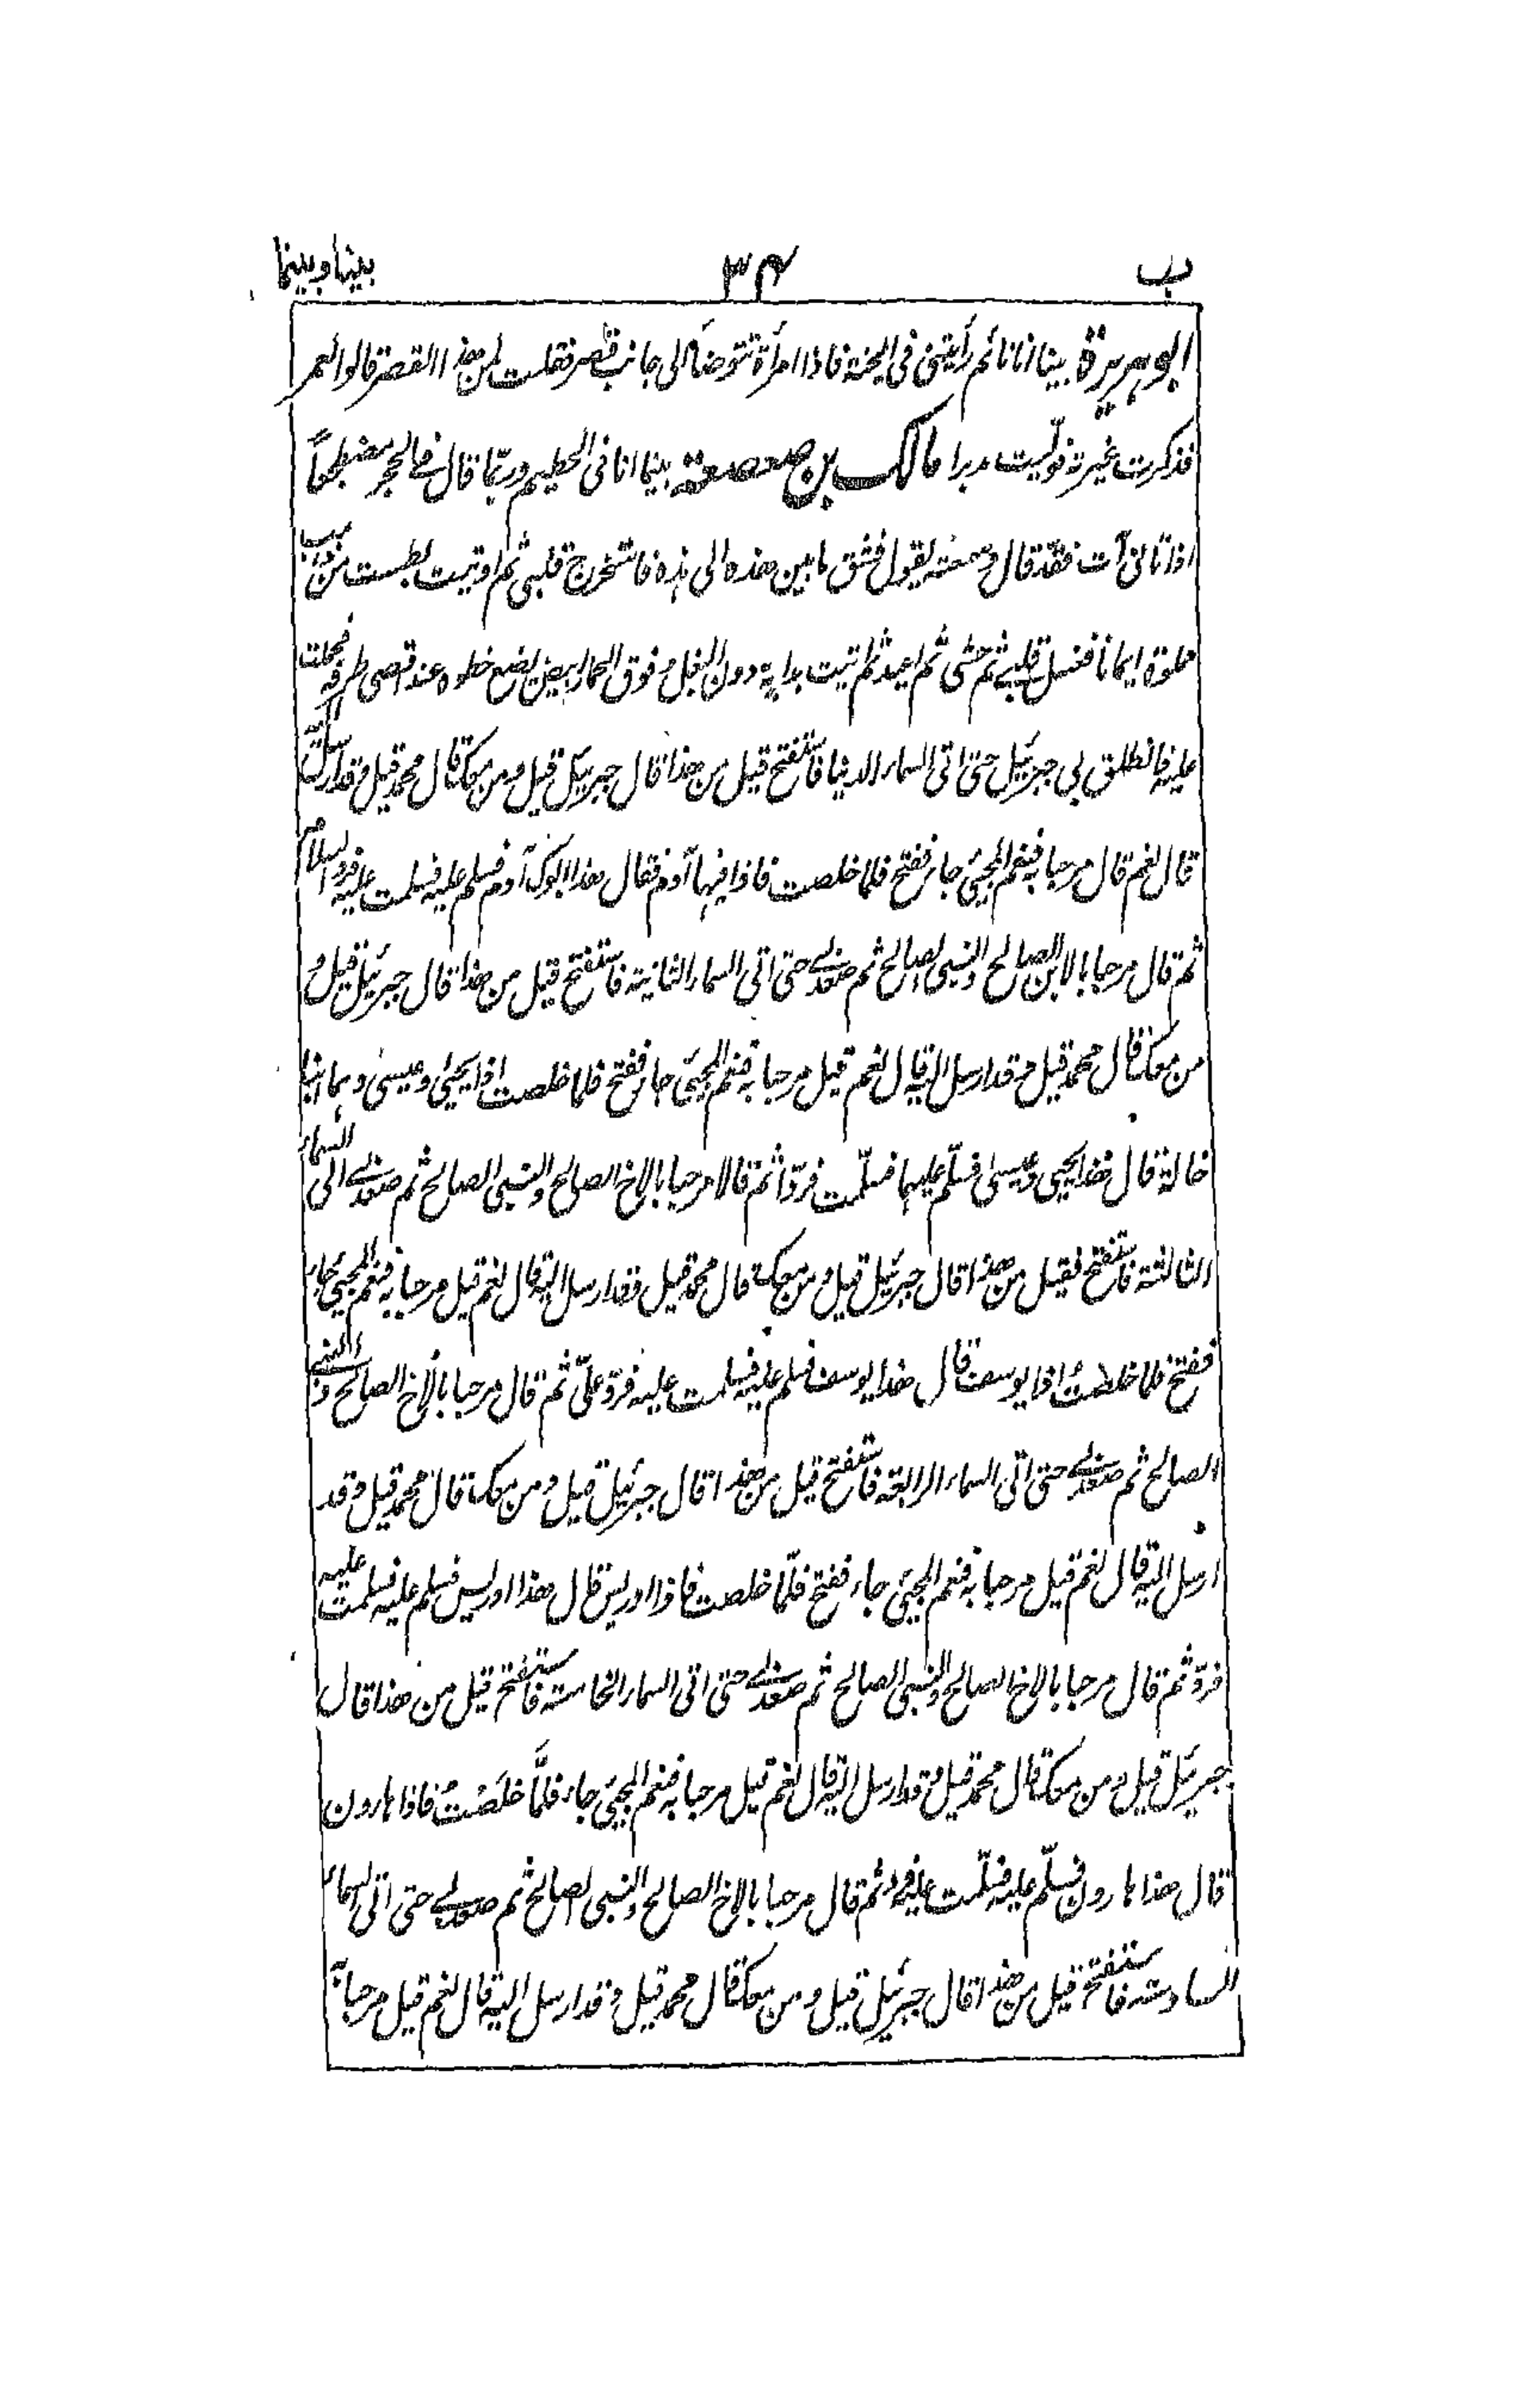 ب ٣٤ بينا وبينما
ابو هريرة بينا انا نائم رأيتنى فى الجنة فاذا امرأة تتوضأ الى جانب قصر فقلت لمن هذا القصر قالوا لعمر
فذكرت غيرته فوليت مدبرا مالك بن صعصعة بينما انا فى الحطيم وربّما قال فى الحجر مضطجعاً
اذ اتانى آت فقدّ قال وسمعته يقول فشق ما بين هذه الى هذه فاستخرج قلبى ثم اوتيت بطست من ذهب
مملوة ايمانا فغسل قلبى ثم حشى ثم اعيد ثم اتيت بدابة دون البغل وفوق الحمار ابيض يضع خطوه عند اقصى طرفه فحملت
عليه فانطلق بى جبرئيل حتى اتى السماء الدنيا فاستفتح قيل من هذا قال جبرئيل قيل ومن معك قال محمد قيل وقد ارسل اليه
قال نعم قال مرحبا به فنعم المجيئ جاء ففتح فلما خلصت فاذا فيها آدم فقال هذا ابوك آدم فسلم عليه فسلمت عليه فرد السلام
ثم قال مرحبا بالابن الصالح والنبى الصالح ثم صعد بى حتى اتى السماء الثانية فاستفتح قيل من هذا قال جبرئيل قيل و
من معك قال محمد قيل وقد ارسل اليه قال نعم قيل مرحبا به فنعم المجيئ جاء ففتح فلما خلصت اذا يحيى وعيسى وهما ابنا
خالة قال هذا يحيى وعيسى فسلّم عليهما فسلّمت فردّا ثم قالا مرحبا بالاخ الصالح والنبى الصالح ثم صعد بى الى السماء
الثالثة فاستفتح فقيل من هذا قال جبرئيل قيل ومن معك قال محمد قيل وقد ارسل اليه قال نعم قيل مرحبا به فنعم المجيئ جاء
ففتح فلما خلصتُ اذا يوسف قال هذا يوسف فسلم عليه فسلمت عليه فردّ علىّ ثم قال مرحبا بالأخ الصالح والنبى
الصالح ثم صعد بى حتى اتى السماء الرابعة فاستفتح قيل من هذا قال جبرئيل قيل ومن معك قال محمد قيل وقد
ارسل اليه قال نعم قيل مرحبا به فنعم المجيئ جاء ففتح فلمّا خلصت فاذا ادريس قال هذا ادريس فسلم عليه فسلمت عليه
فردّ ثم قال مرحبا بالاخ الصالح والنبى الصالح ثم صعد بى حتى اتى السماء الخامسة فاستفتح قيل من هذا قال
جبرئيل قيل ومن معك قال محمد قيل وقد ارسل اليه قال نعم قيل مرحبا به فنعم المجيئ جاء فلمَّا خلَصْتُ فاذا هارون
قال هذا هارون فسلّم عليه فسلّمت عليه فرد ثم قال مرحبا بالاخ الصالح والنبى الصالح ثم صعد بى حتى اتى السماء
السادسة فاستفتح قيل من هذا قال جبرئيل قيل ومن معك قال محمد قيل وقد ارسل اليه قال نعم قيل مرحبا به